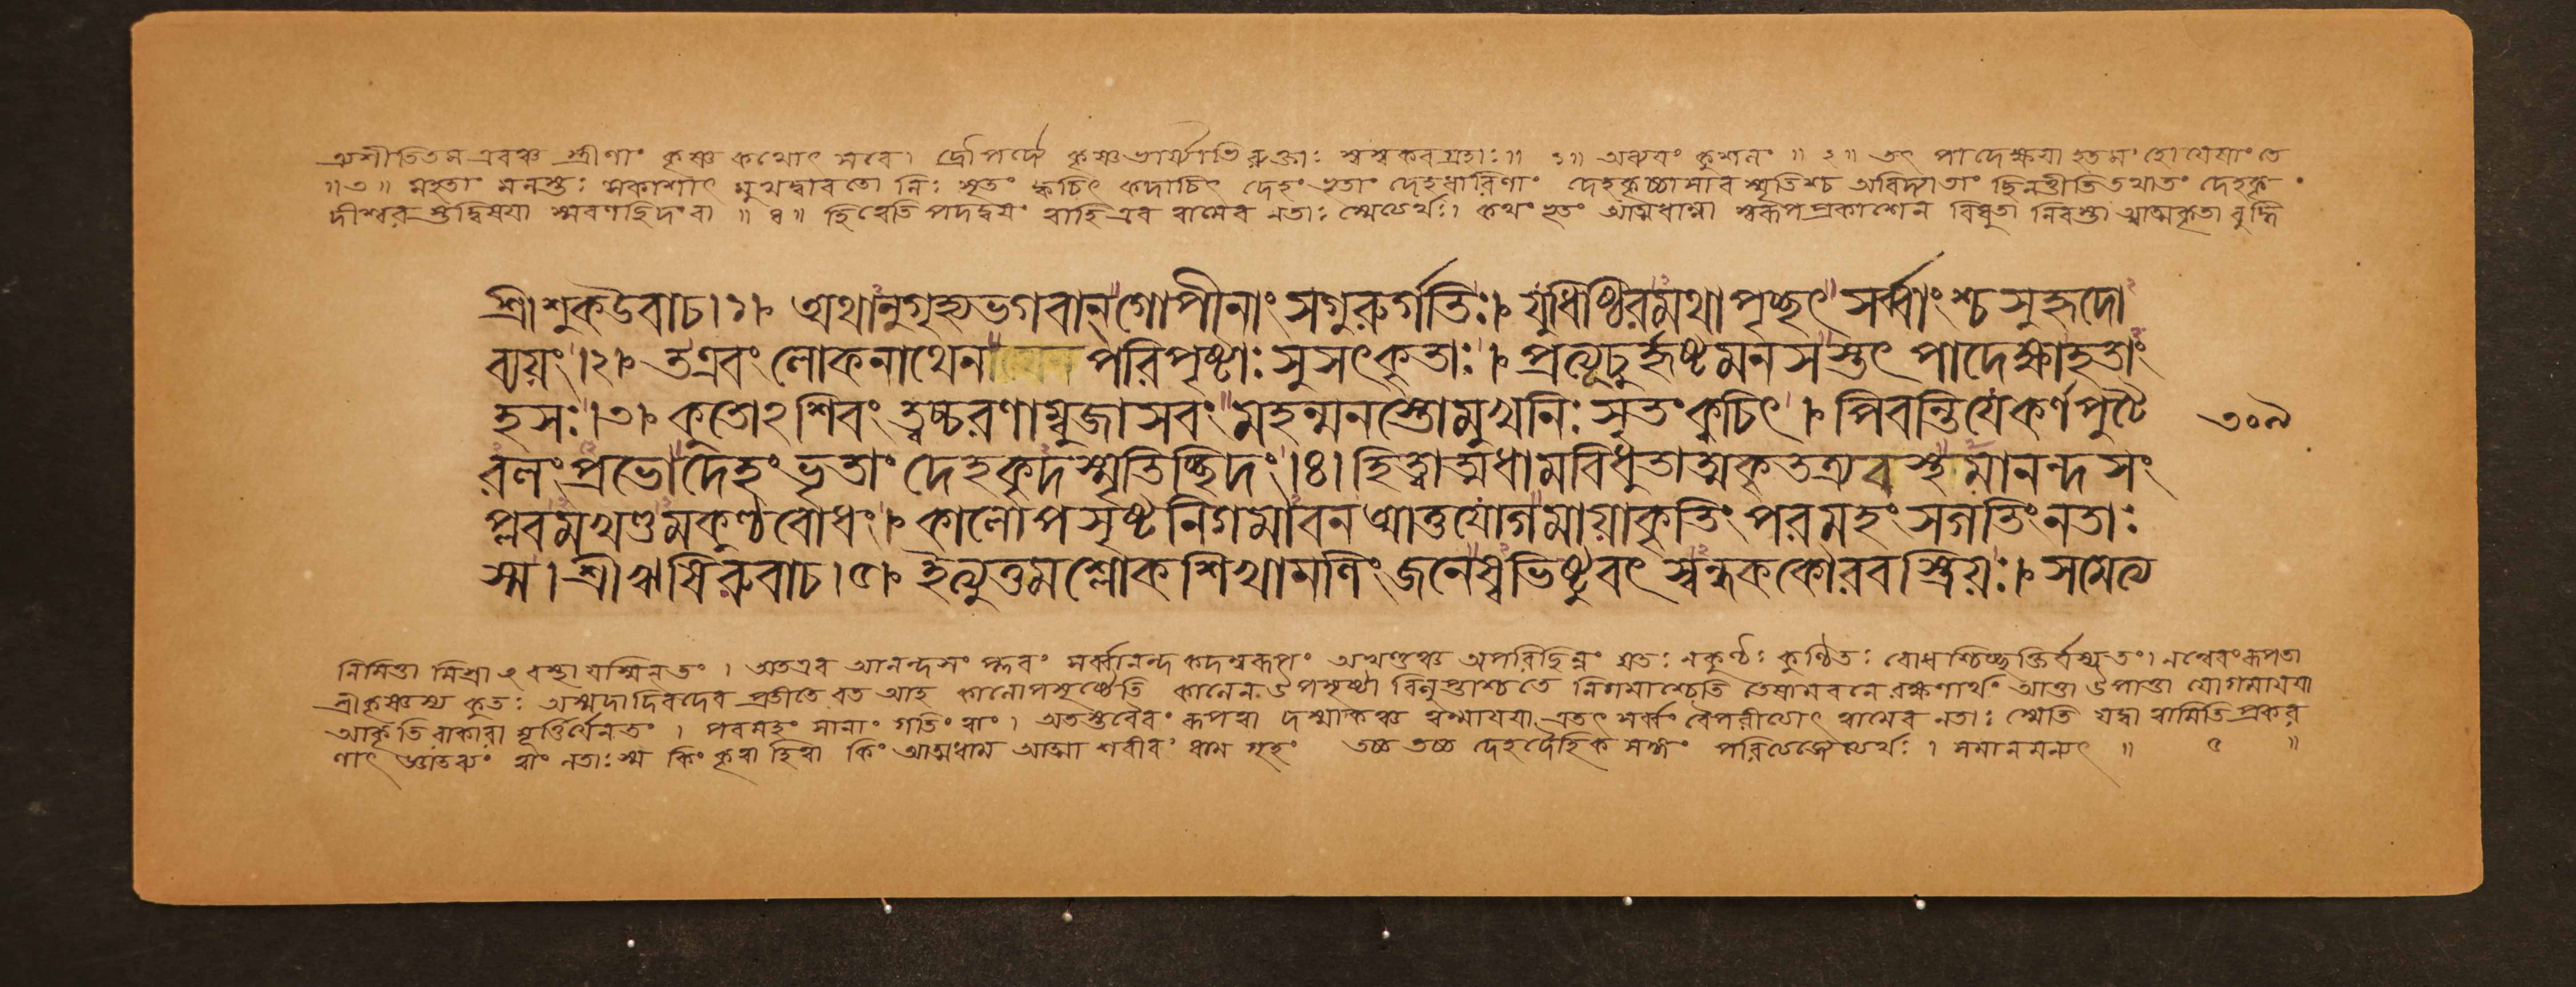 অশীতিতম এবঞ্চ স্ত্রীণাং কৃষ্ণ কথোৎসবে। দ্রৌপদ্যৈ কৃষ্ণভার্য্যাভিরুক্তাঃ স্বস্বকরগ্রহাঃ॥ ১॥ অব্যযং কুশলং ॥ ২॥ তৎ পাদেক্ষযা হতমংহো যেষাং তে
॥৩॥ মহতাং মনস্তঃ সকাশাৎ মুখদ্বারতো নিঃ সৃতং ক্বচিৎ কদাচিৎ দেহং ভৃতাং দেহধারিণাং দেহকৃচ্চাসাব স্মৃতিশ্চ অবিদ্যাতাং ছিনত্তীতি তথাতং দেহকৃ
দীশ্বর স্তদ্বিষযা স্মরণছিদং বা ॥ ৪॥ হিত্বেতি পদদ্বযং ত্বাহি এব ত্বামেব নতাঃ স্মেত্যর্থঃ। কথং ভূতং আত্মধাম্না স্বরূপপ্রকাশেন বিধুতা নিরস্তা আত্মকৃতা বুদ্ধি
শ্রীশুকউবাচ।১। অথানুগৃহ্যভগবান্গোপীনাং সগুরুর্গতিঃ। যুধিষ্ঠিরমথাপৃচ্ছৎ সর্ব্বাংশ্চ সুহৃদো
ব্যয়ং।২। তএবং লোকনাথেন পরিপৃষ্টাঃ সুসৎকৃতাঃ। প্রত্যূচুর্হৃষ্টমনসস্তৎ পাদেক্ষাহতাং
হসঃ।৩। কুতোঽশিবং ত্বচ্চরণাম্বুজাসবং মহন্মনস্তোমুখনিঃ সৃতংকুচিৎ। পিবন্তিযেকর্ণপুটৈ ৩০৯
রলংপ্রভোদেহং ভৃতাং দেহকৃদস্মৃতিচ্ছিদং।৪। হিত্বাত্মধামবিধুতাত্মকৃতত্র্যবস্থমানন্দসং
প্লবমখণ্ডমকুণ্ঠবোধং। কালোপসৃষ্টনিগমাবনআত্তযোগমায়াকৃতিং পরমহংসগতিংনতাঃ
স্ম। শ্রীঋষিরুবাচ।৫। ইত্যুত্তমশ্লোকশিখামণিং জনেষ্বভিষ্টুবৎ স্বন্ধককৌরবস্ত্রিয়ঃ। সমেত্য
নিমিত্তা মিশ্রা ২ বস্থা যস্মিন্ তং । অতএব আনন্দসং প্লবং সর্ব্বানন্দ কদম্বরূপং অখণ্ডঞ্চ অপরিছিন্নং এতঃ নকুণ্ঠঃ কুণ্ঠিতঃ বোধশ্চিচ্ছক্তির্যস্য তং। নন্বেবংরূপতা
শ্রীকৃষ্ণস্য কুতঃ অস্মদাদিবদেব প্রতীতে রত আহ কালোপসৃষ্টেতি কালেন উপসৃষ্টা বিলুপ্তাশ্চতে নিগমাশ্চেতি তেষামবনে রক্ষণার্থং আত্তা উপাত্তা যোগমাযযা
আকৃতি রাকারা মূর্ত্তির্যেনতং । পরমহং সানাং গতিং ত্বাং। অতস্তবৈবং রূপত্বা
ণাৎ ত্বাং নতাঃ স্ম কিং কৃত্বা হিত্বা কিং আত্মধাম আত্মা শরীরং ধাম গৃহং তচ্চ তচ্চ দেহদৈহিক সঙ্গং পরিত্যজ্যেত্যর্থঃ । সমানমন্যৎ ॥ ৫ ॥